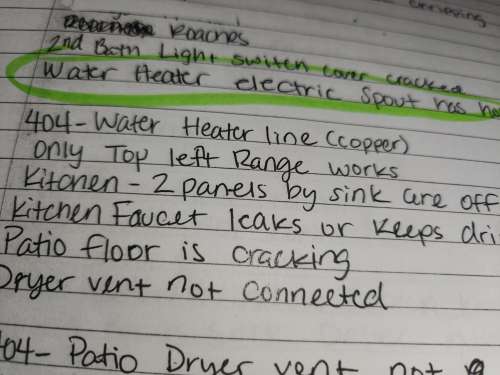 Roaches
2nd Bath Light switch cover cracked
Water Heater electric spout has
404-Water Heater line (copper)
only Top left Range works
Kitchen - 2 panels by sink are off
Kitchen Faucet leaks or keeps dri
Patio floor is cracking
Dryer vent not connected
404- Patio Dryer vent not